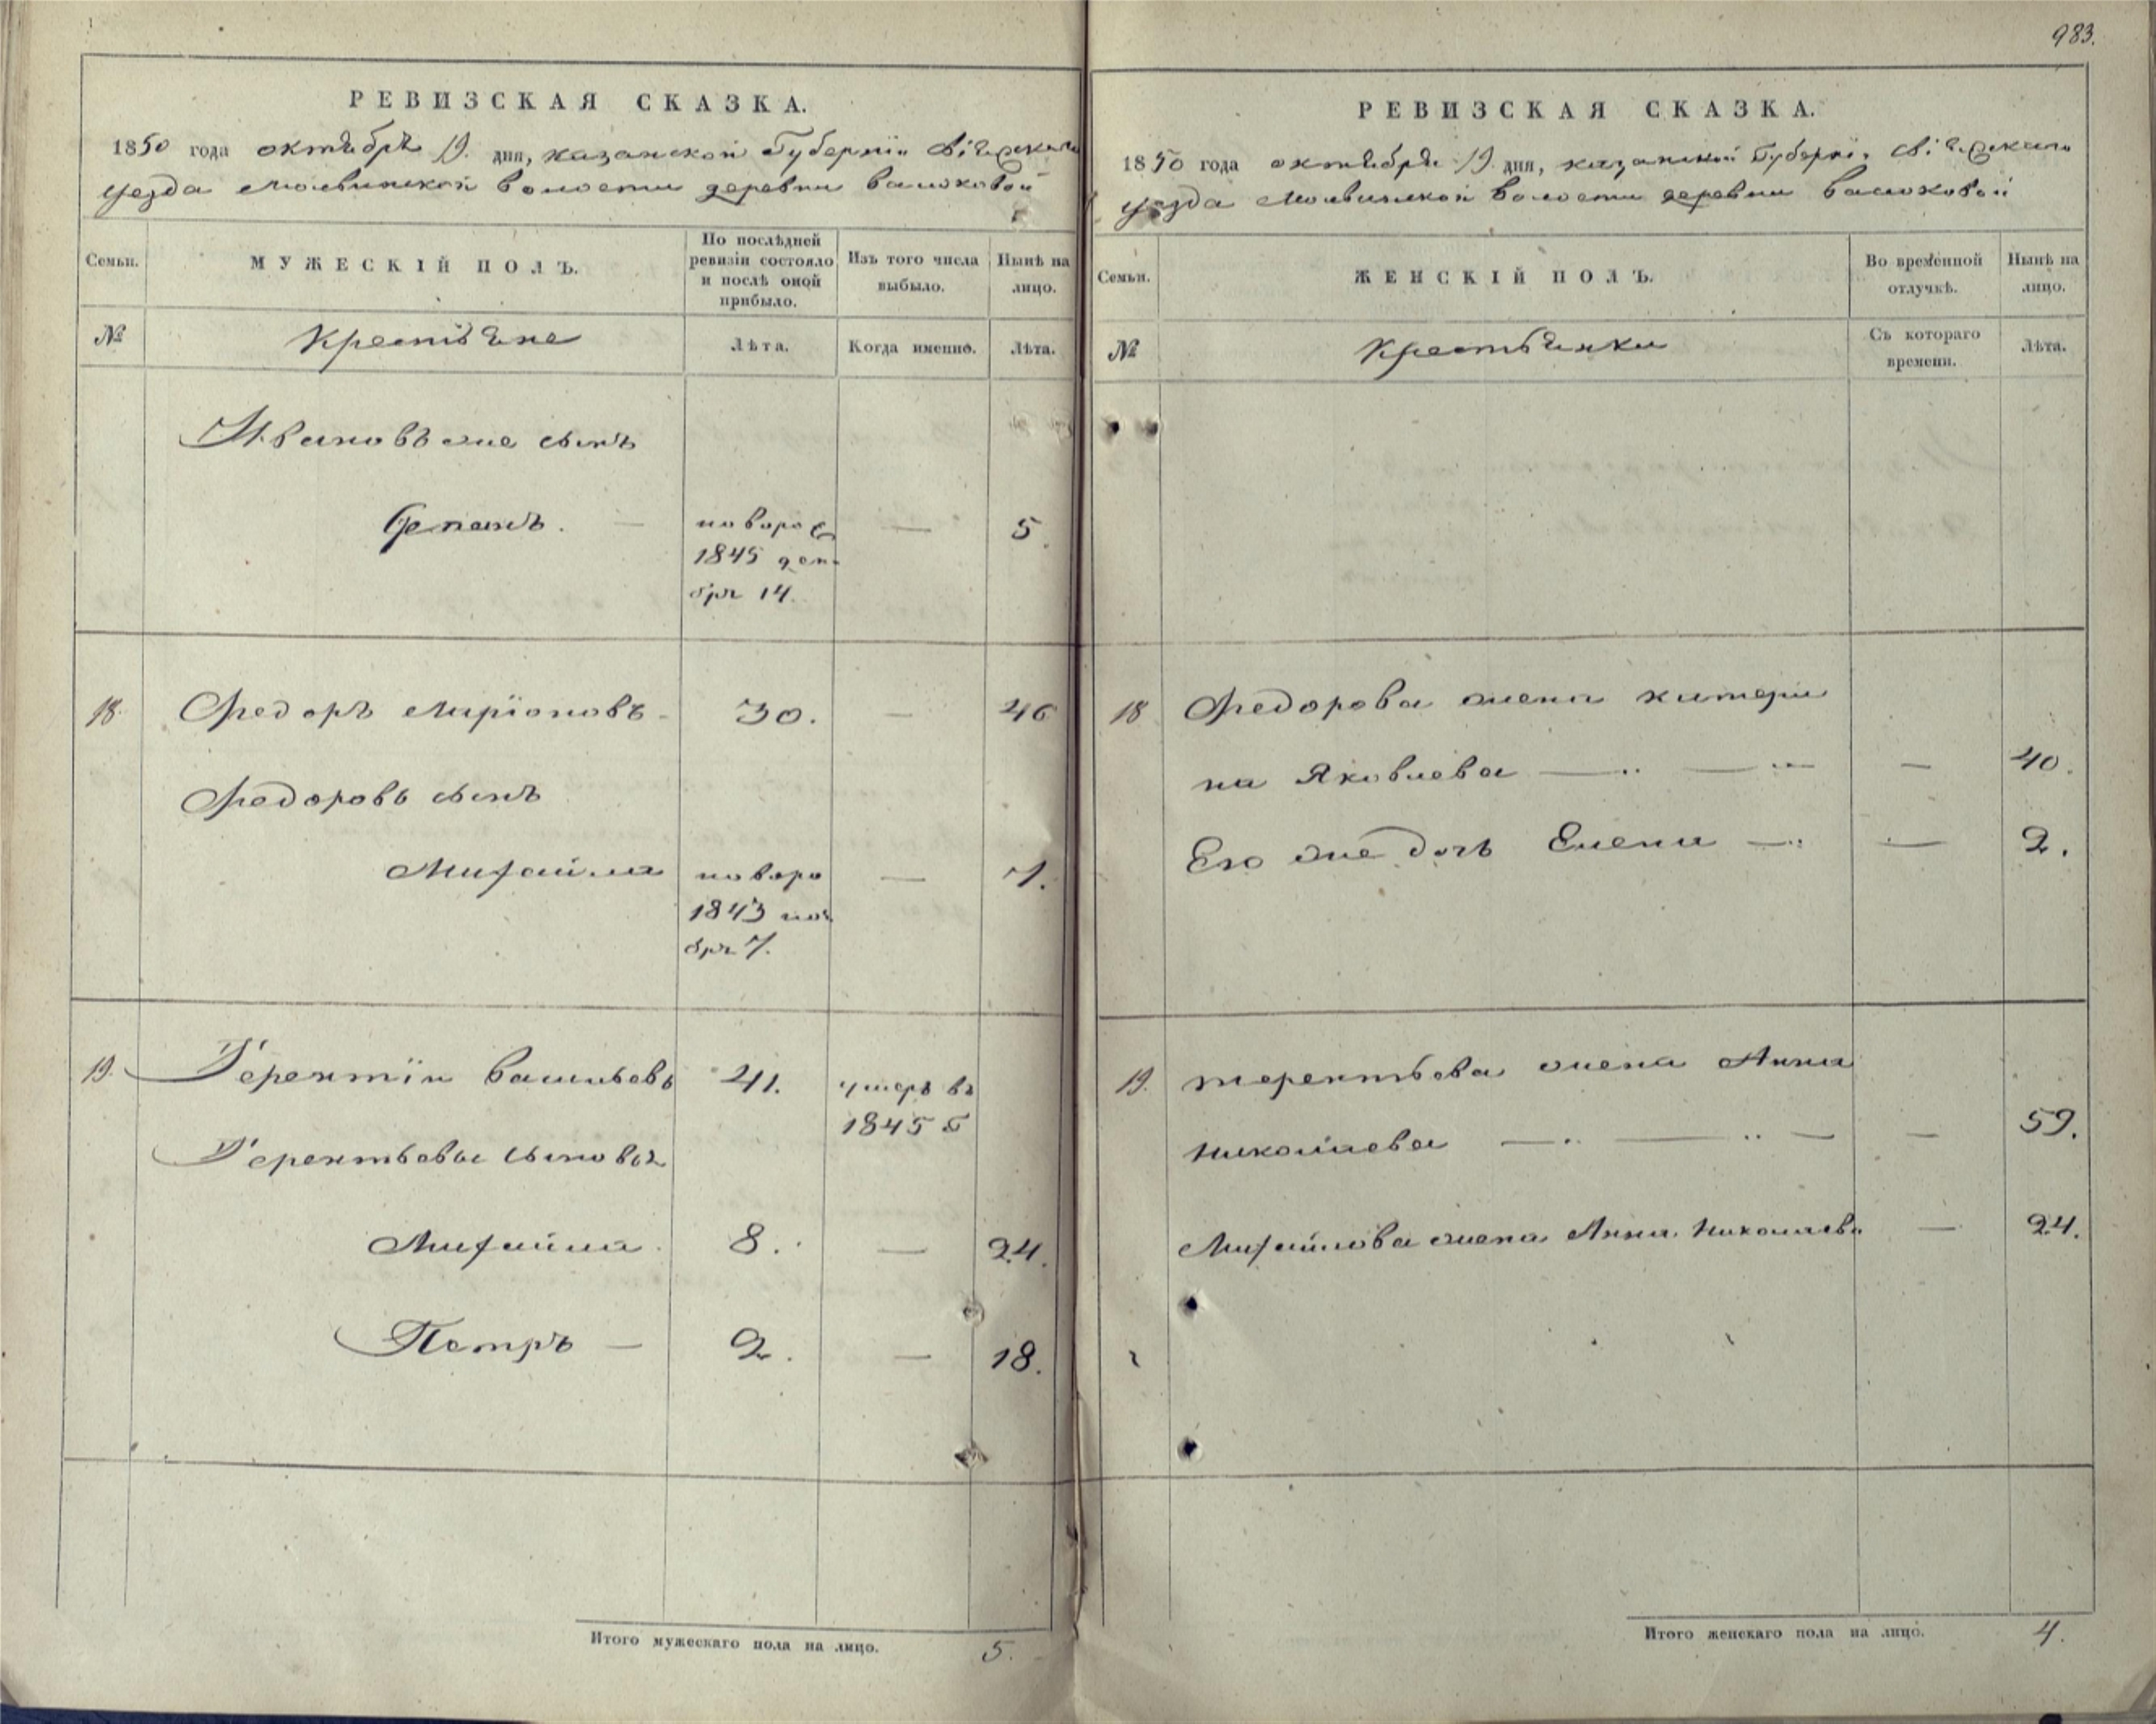 983.
РЕВИЗСКАЯ СКАЗКА.
1850 года октября 19. дня, казанской Губернии Свіяжскаго
уезда Молвинской волости деревни Васюковой
Семьи.
МУЖЕСКІЙ ПОЛЪ.
По послѣдней ревизіи состояло и послѣ оной прибыло.
Изъ того числа выбыло.
Нынѣ на лицо.
№
Крестьяне
Лѣта.
Когда именно.
Лѣта.
Ивановъ же сынъ
Степанъ. — новорож 1845 декабря 14. — 5.
18. Федоръ Ларіоновъ 30. — 46
Федоровъ сынъ
Михайла новоро 1843 ноября 7. — 7.
19. Терентій Васильевъ 41. умеръ въ 1845 г
Терентьевы сыновья
Михайла. 8. — 24.
Петръ — 2. — 18.
Итого мужескаго пола на лицо. 5.
РЕВИЗСКАЯ СКАЗКА.
1850 года октября 19. дня, казанской Губерніи Свіяжскаго
уезда Молвинской волости деревни Васюковой
Семьи.
ЖЕНСКІЙ ПОЛЪ.
Во временной отлучкѣ.
Нынѣ на лицо.
№
Крестьянки
Съ котораго времени.
Лѣта.
18 Федорова жена катери
на Яковлева — — — 40.
Его же дочь Елена — — 2.
19. терентьева жена Анна
Николаева — — — — 59.
Михайлова жена Анна Николаева — 24.
Итого женскаго пола на лицо. 4.